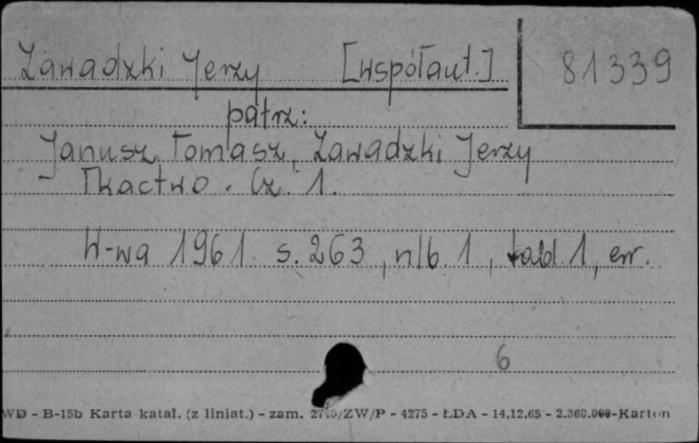 Zawadzki Jerzy [współaut.] 81339
patrz:
Janusz Tomasz, Zawadzki Jerzy
Tkactwo. Cz. 1.
W-wa 1961. s. 263, nlb. 1, tabl 1, err.
6
WD - B-15b Karta katal. (z liniat.) - zam. /ZW/P - 4275 - ŁDA - 14.12.65 - 2.360.000-Karton